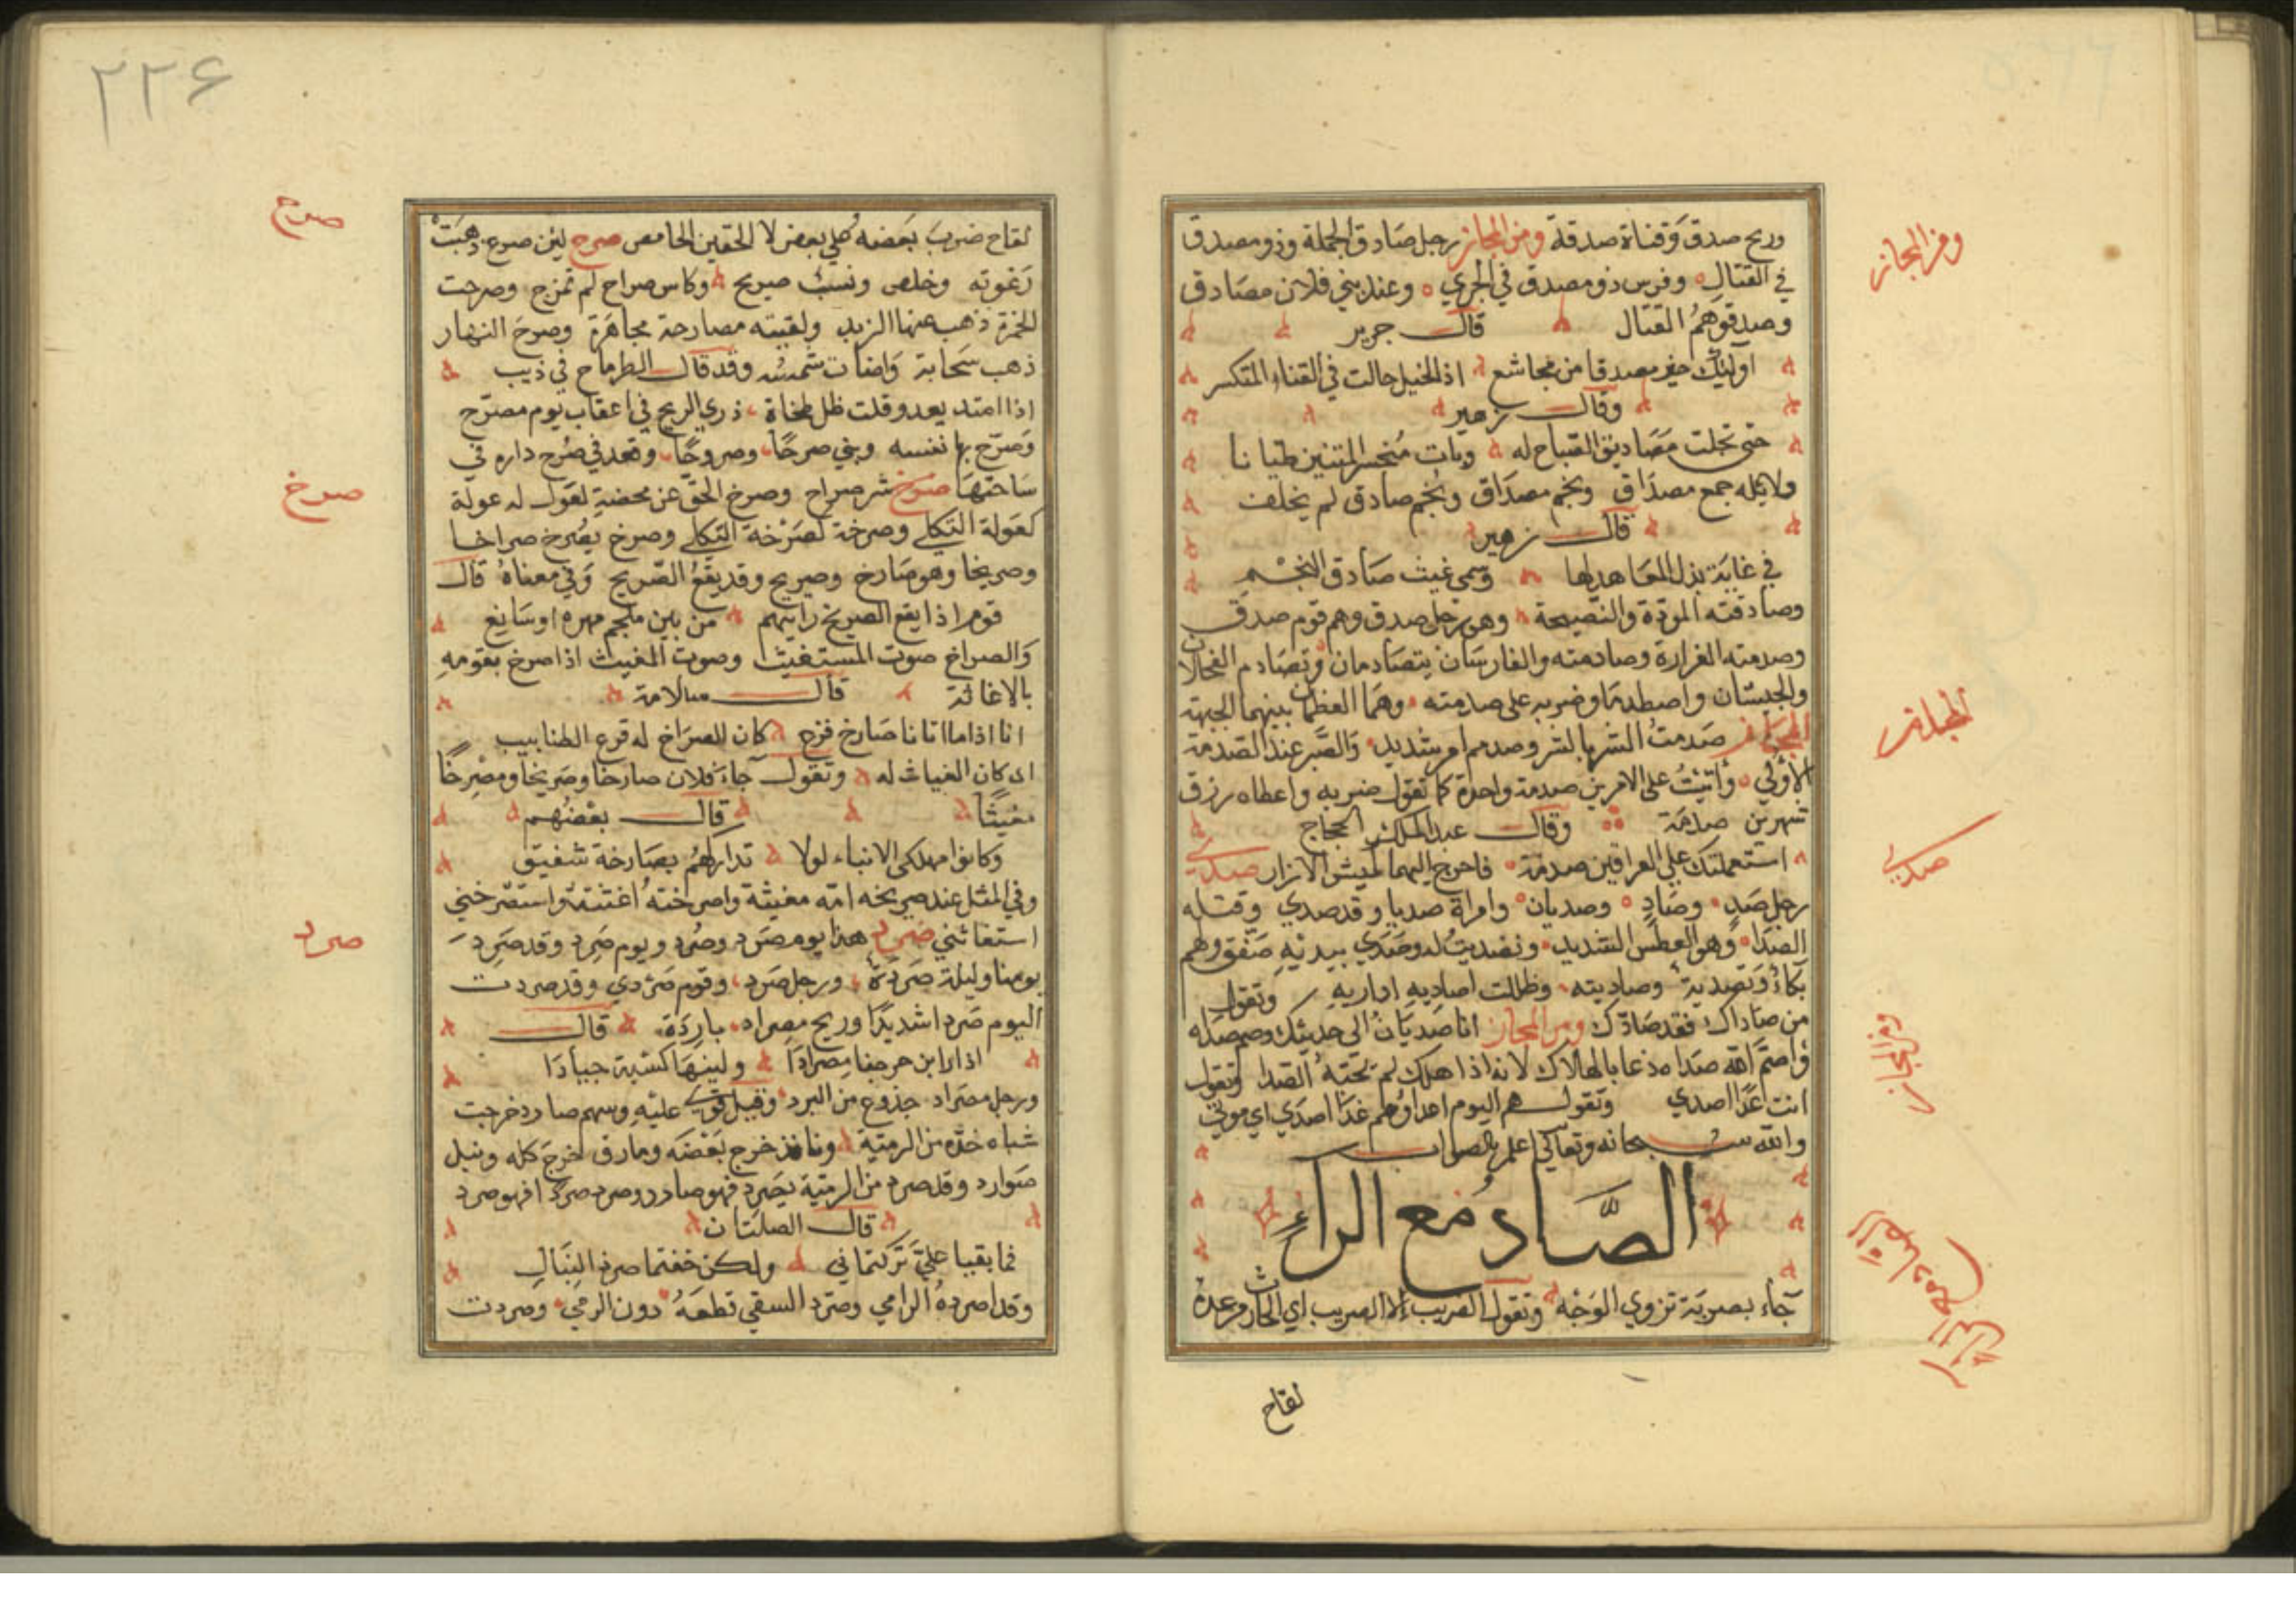 وريح صدق وقناة صدقة ومن المجاز رجل صادق الحملة وذو مصدق
ومن المجاز
في القتال وفرس ذو مصدق في الجري وعند بني فلان مصادق
وصدقوهم القتال قال جرير
اولئك خير مصدقا من مجاشع اذا الخيل جالت في القناء المتكسر
وقال زهير
حتى تجلت مصاديق الصباح له وبات منحسر المتنين طيانا
ولا يكله جمع مصداق ونجم مصداق ونجم صادق لم يخلف
قال زهير
في غاية بذل العهاد لها وسمى غيث صادق النجم
وصادقته المودة والنصيحة وهو رجل صدق وهم قوم صدق
وصدمته الغرارة وصادمته والفارسان يتصادمان وتصادم الفحلان
والجيشان واصطدما وضربه على صدمته وهما العظمان بينهما الجبهة
المجاز صدمت الشر بالشر وصدمهم امر شديد والصبر عند الصدمة
الاولى واتيت على الامرين صدمة واحدة كما تقول ضربه واعطاه رزق
شهرين صدمة وقال عبد الملك للحجاج
استعملتك على العراقين صدمة فاخرج اليهما كميش الازار صدي
صدي
رجل صد وصاد وصديان وامراة صديا وقد صدي وقتله
الصدا وهو العطش الشديد وتصديت له وصدي بيديه صفق وهم
بكاء وتصدية وصاديته وظللت اصاديه اداريه وتقول
من صاداك فقد صادك ومن المجاز انا صديان الى حديثك وصم صداه
ومن المجاز
واصم الله صداه دعا بالهلاك لانه اذا هلك لم تحته الصدا وتقول
انت غدا صدي وتقول هم اليوم اعداؤهم غدا اصدي اي موتى
والله سبحانه وتعالى اعلم بالصواب
الصاد مع الراء
جاء بصربة تزوي الوجه وتقول الضريب لا الصريب اي الحاث من عدة
لقاح
٢٢٦
لقاح ضرب بعضه على بعض لا الحقين الحامض صرح لبن صرح ذهبت
صرح
رغوته وخلص ونسب صريح وكاس صراح لم تمزج وصرحت
الخمرة ذهب عنها الزبد ولقيته مصارحة مجاهرة وصرح النهار
ذهب سحابه واضات شمسه وقد قال الطرماح في ذيب
اذا امتد يعدو قلت ظل طخاة ذري الريح في اعقاب يوم مصرح
وصرح بما نفسه وبني صرحا وصروحا وقعد في صرح داره في
ساحتها صرخ شر صراح وصرخ الحق عن محضه لقول له عولة
صرخ
كعولة الثكلى وصرخة لصرخة الثكلى وصرخ يصرخ صراخا
وصريخا وهو صارخ وصريخ وقد يقع الصريخ وفي معناه قال
قوم اذا يقع الصريخ رايتهم من بين ملجم مهره او سافع
والصراخ صوت المستغيث وصوت المغيث اذا صرخ بقومه
بالاغاثة قال سلامة
انا اذا ما اتانا صارخ فزع كان الصراخ له قرع الظنابيب
اي كان الغياث له وتقول جاء فلان صارخا وصريخا ومصرخا
مغيثا قال بعضهم
وكانوا مهلكي الابناء لولا تداركهم بصارخة شفيق
وفي المثل عبد صريخه امة مغيثه واصرخته اغثته واستصرخني
استغاثني صرد هذا يوم صرد وصرد ويوم صرد وقد صرد
صرد
يومنا وليلة صردة ورجل صرد وقوم صردي وقد صردت
اليوم صردا شديدا وريح مصراد باردة قال
اذا راين حرجفا مصرادا ولينها اكسبة جيادا
ورجل مصراد جذوع من البرد وقيل قوي عليه وسهم صارد خرجت
شباه حده من الرمية ونافذ خرج بعضه ومارق خرج كله ونبل
صوارد وقد صرد من الرمية يصرد فهو صادر وصرد صردا فهو صرد
قال الصلتان
فما بقيا علي تركتماني ولكن خفتما صرد النبال
وقد اصرده الرامي وصرد السقي قطعه دون الري وصردت